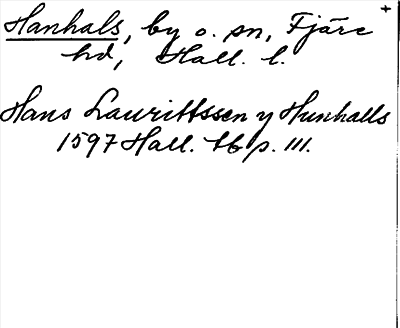 Hanhals, by o. sn, Fjäre +
hd, Hall. l.
Hans Laurittssen y Hunhalls
1597 Hall. tb p. 111.